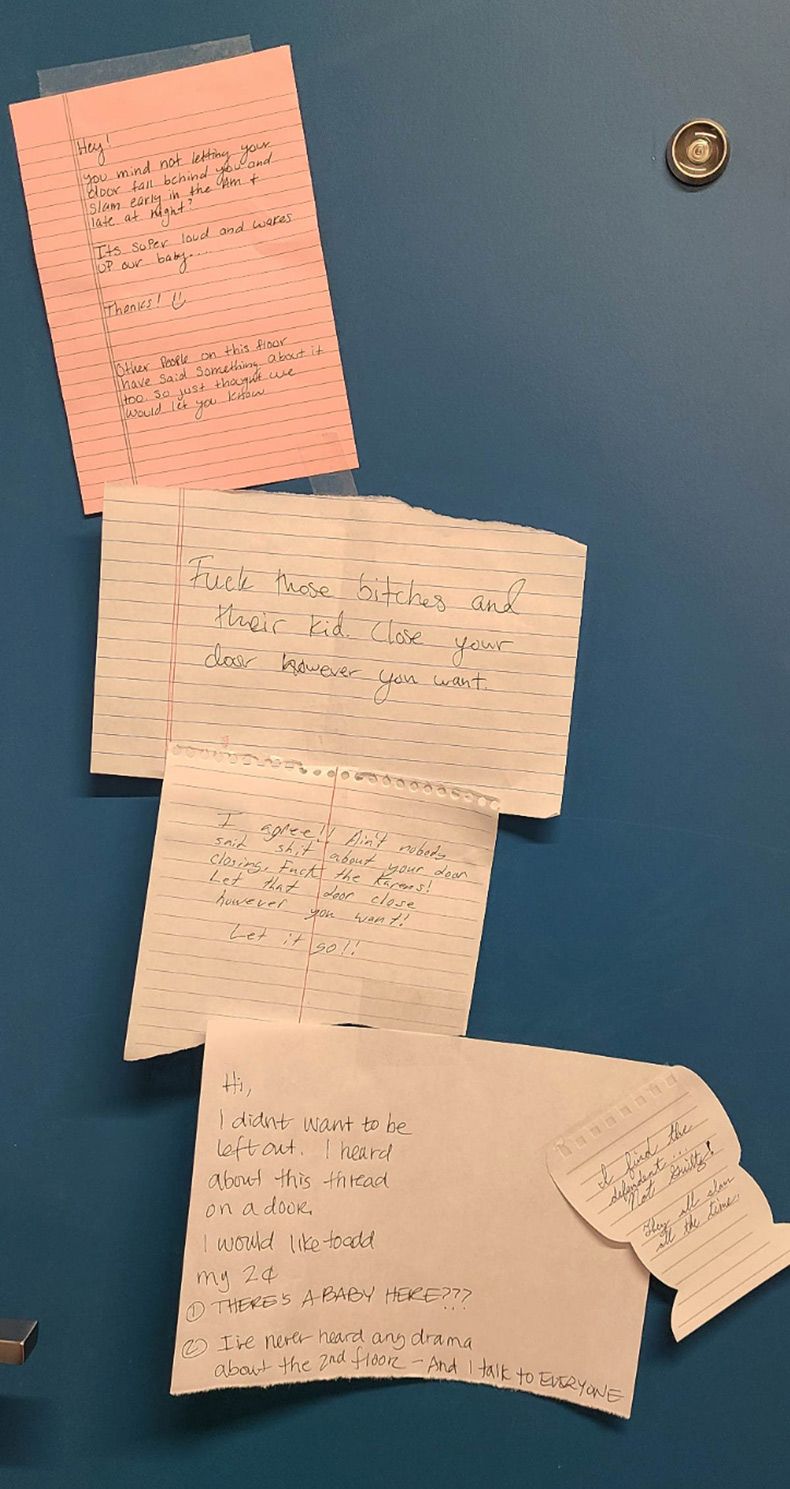 Hey!
you mind not letting your
door fall behind you and
slam early in the Am +
late at night?
Its super loud and wakes
up our baby....
Thanks!
Other People on this floor
have said something about it
too. So just thought we
would let you know
Fuck those bitches and
their kid. Close your
door however you want.
I agree!! Ain't nobody
said shit about your door
closing. Fuck the Karens!
Let that door close
however you want!
Let it go!!
Hi,
I didnt want to be
left out. I heard
about this thread
on a door.
I would like to add
my 2¢
① THERE'S A BABY HERE???
② I've never heard any drama
about the 2nd floor - And I talk to EVERYONE
I find the
defendent...
Not Guilty!
They all slam
all the time.